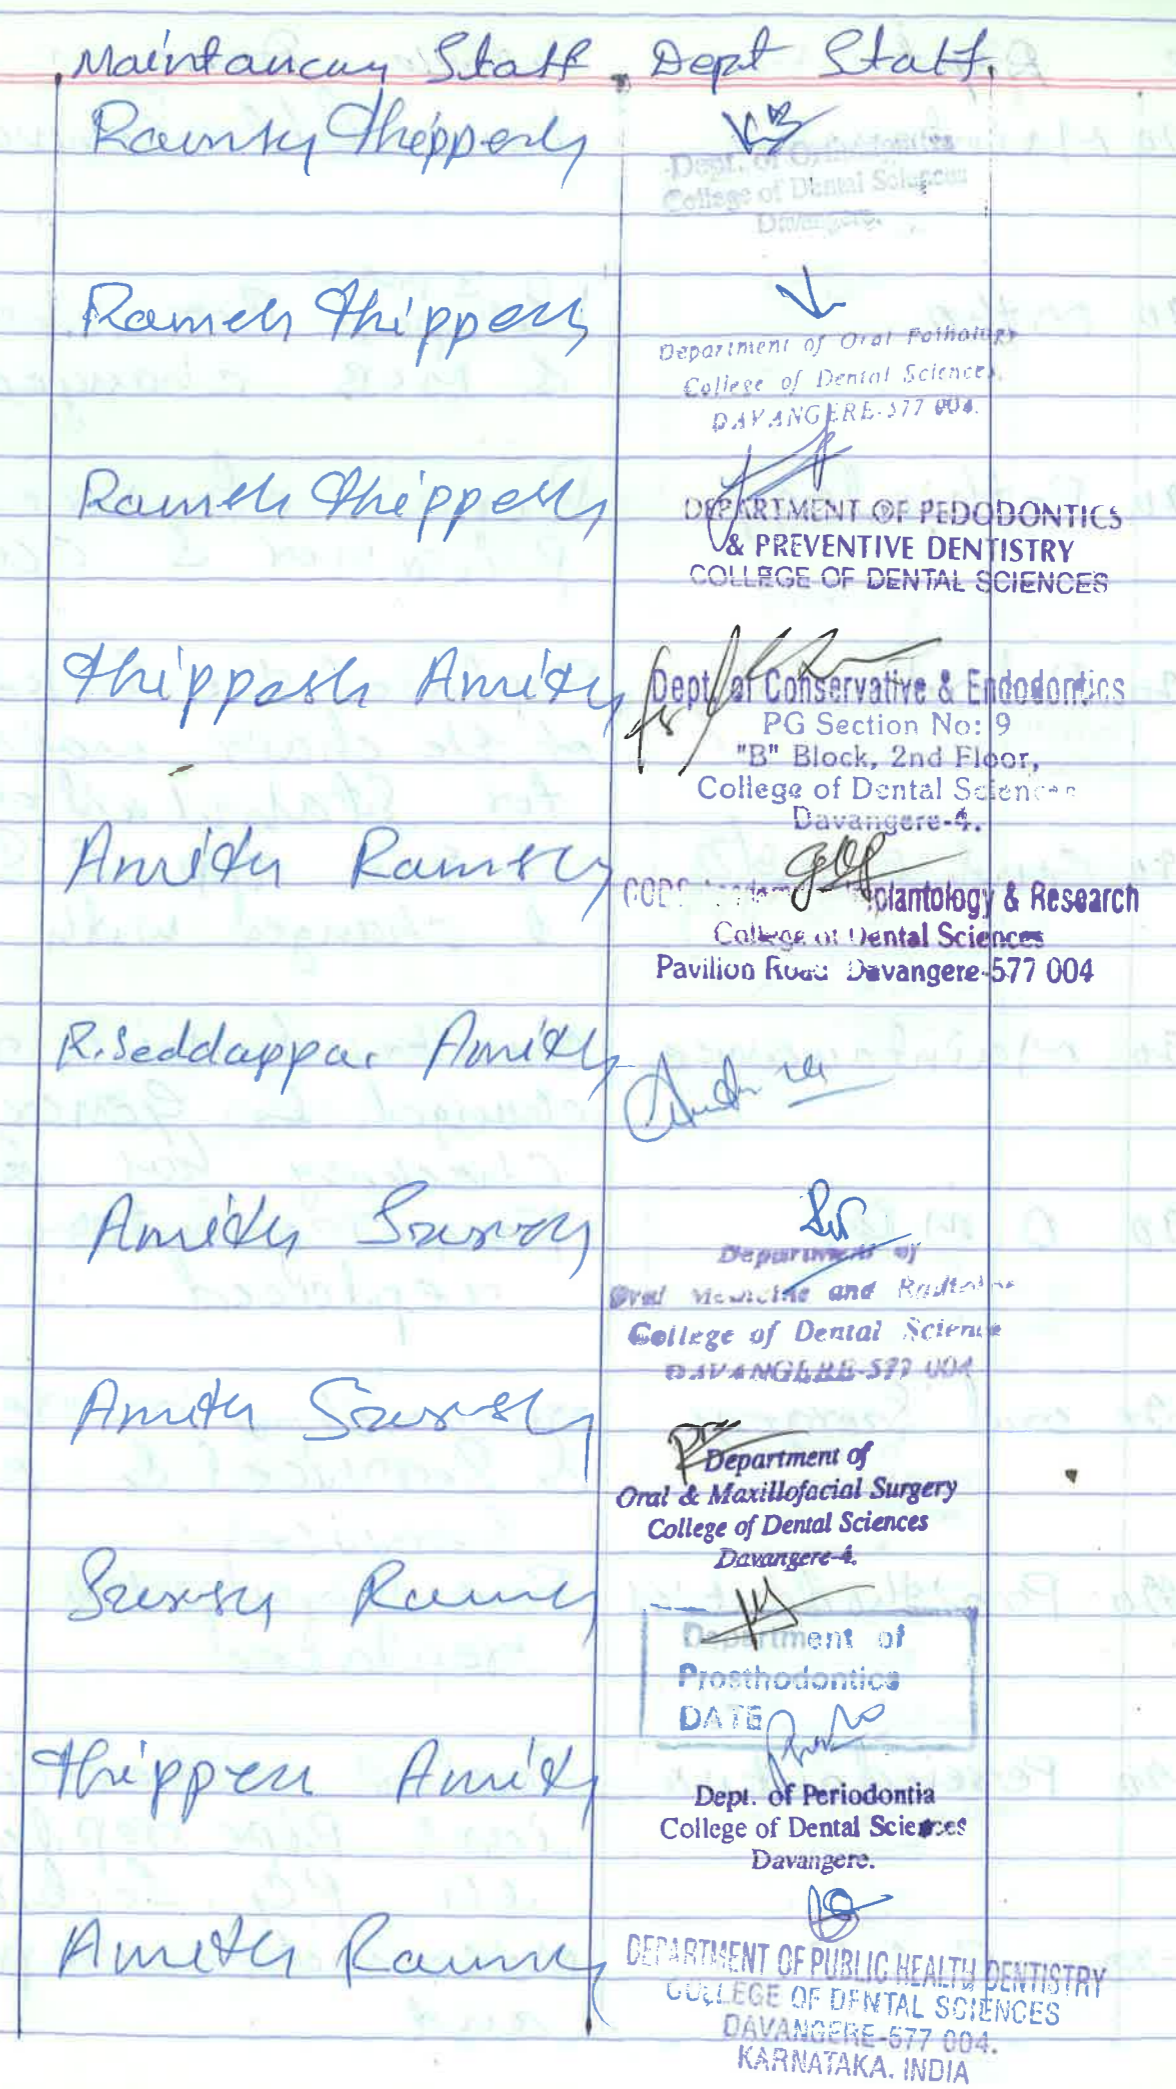 Maintancay Staff Dept Staff
Ramesh Thippesh
Dept. of Orthodontics
College of Dental Sciences
Davangere.
Ramesh Thippesh
Department of Oral Pathology
College of Dental Sciences,
DAVANGERE-577 004.
Ramesh Thippesh
DEPARTMENT OF PEDODONTICS
& PREVENTIVE DENTISTRY
COLLEGE OF DENTAL SCIENCES
Thippesh Amith
for
Dept. of Conservative & Endodontics
PG Section No: 9
"B" Block, 2nd Floor,
College of Dental Sciences
Davangere-4.
Amith Ramesh
CODS Implantology & Research
College of Dental Sciences
Pavilion Road Davangere-577 004
R.Seddappa. Amith
Amith
Department of
Oral Medicine and Radiology
College of Dental Science
DAVANGERE-577 004
Amith
Department of
Oral & Maxillofacial Surgery
College of Dental Sciences
Davangere-4.
Ramesh
Department of
Prosthodontics
DATE
Thippesh Amith
Dept. of Periodontia
College of Dental Sciences
Davangere.
Amith Ramesh
DEPARTMENT OF PUBLIC HEALTH DENTISTRY
COLLEGE OF DENTAL SCIENCES
DAVANGERE-577 004.
KARNATAKA. INDIA